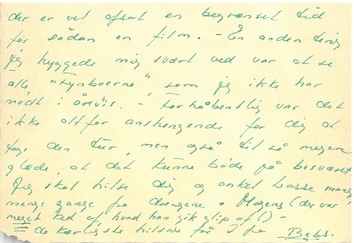 der er vel ofret en begrænset tid
for sådan en film. - En anden ting
jeg hyggede mig svært ved var at se
alle "Fynboerne", som jeg ikke har
mødt i årevis. - Forhåbentlig var det
ikke alt for anstrengende for dig at
tage den tur, men også til så megen
glæde, at det kunne både på besværet.
Jeg skal hilse dig og onkel Basse mange
mange gange fra drengene + Mogens (der var
meget ked af, hvad han gik glip af!) -
de kærligste hilsner for I fra Bebs.